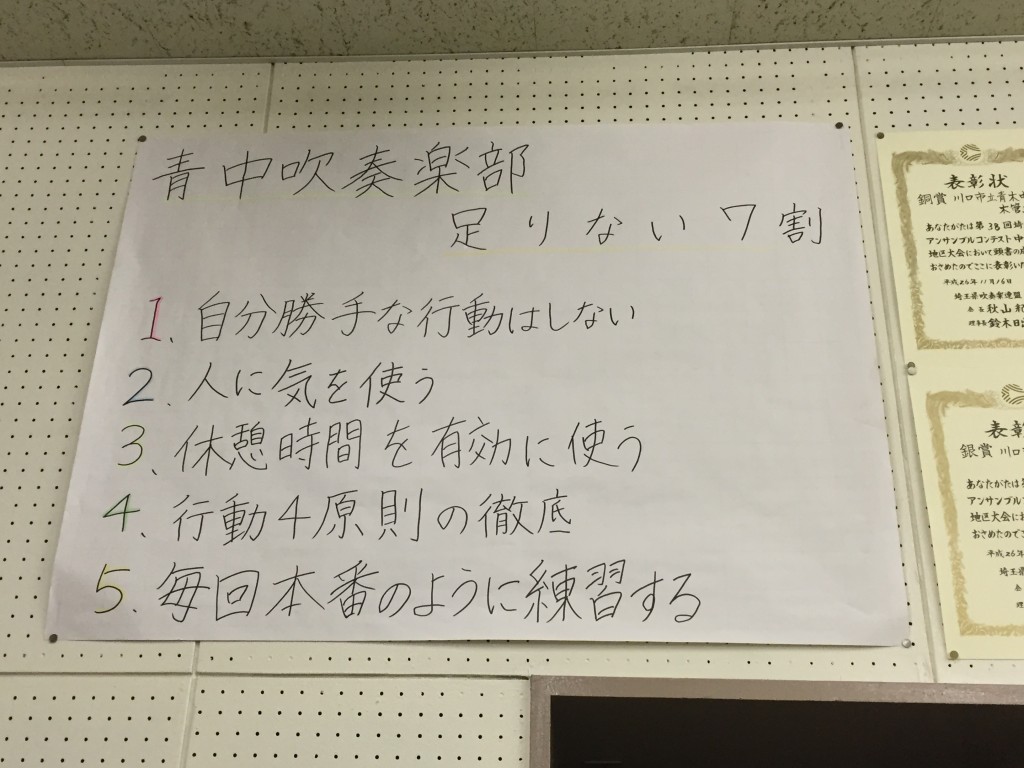 青中吹奏楽部
足りない7割
1、自分勝手な行動はしない
2、人に気を使う
3、休憩時間を有効に使う
4、行動4原則の徹底
5、毎回本番のように練習する
表彰状
銅賞 川口市立青木中
あなたがたは第38回埼
アンサンブルコンテスト中
地区大会において頭書の成
おさめたのでここに表彰い
平成26年11月16日
埼玉県吹奏楽連盟
会長 秋山紀
理事長 鈴木
表彰
銀賞 川口市
あなたがたは第
アンサンブル
地区大会にお
おさめたのでこ
平成26年
埼玉県